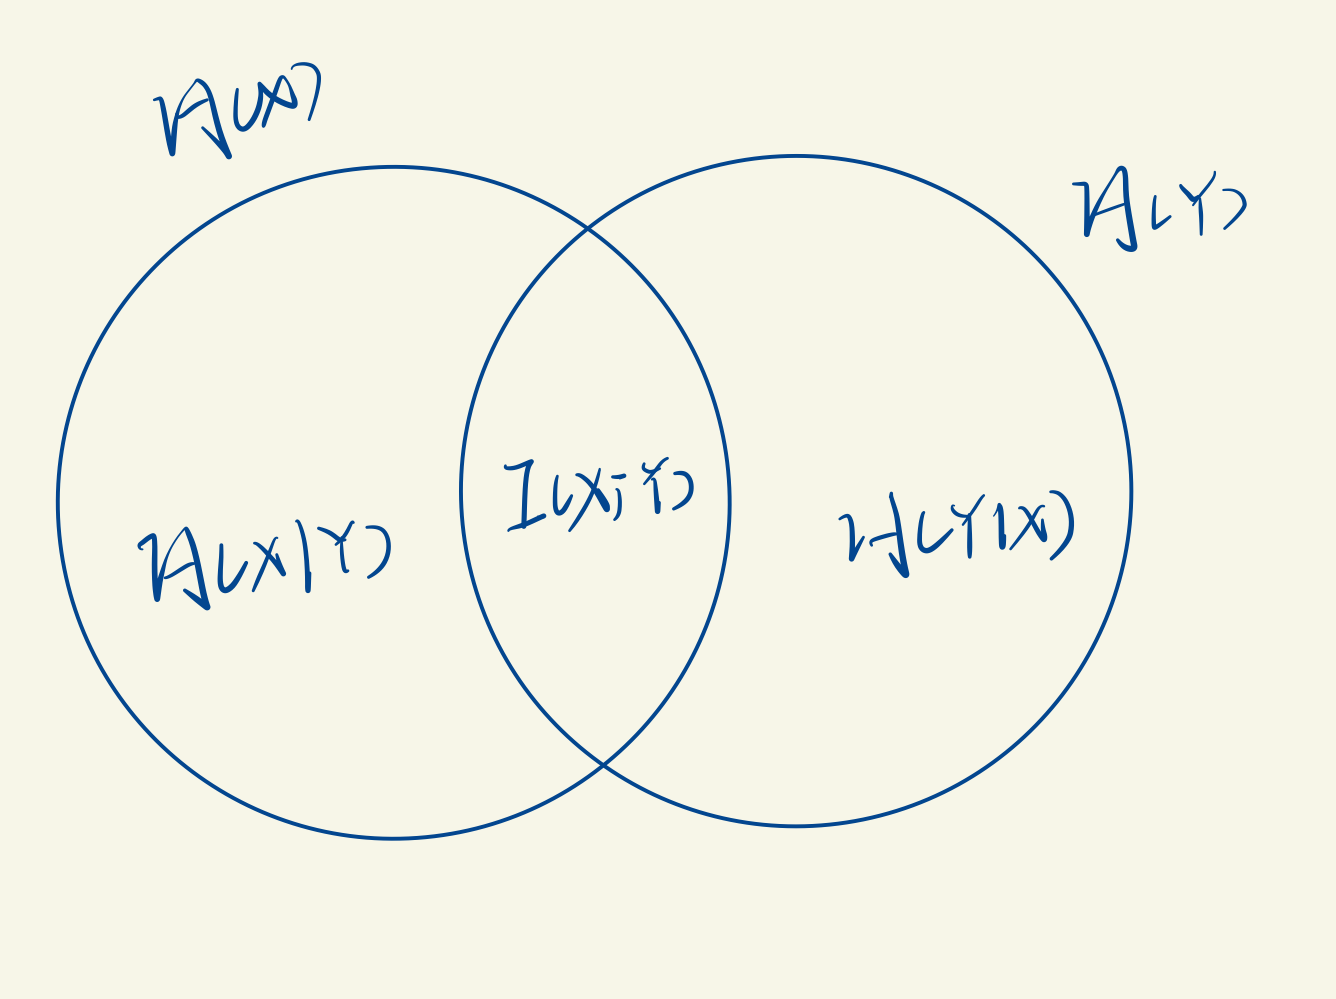 H(X)
H(Y)
I(X;Y)
H(X|Y)
H(Y|X)